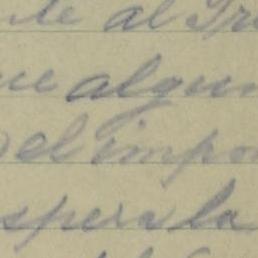 te al Tr
ue algun
el impo
spera la